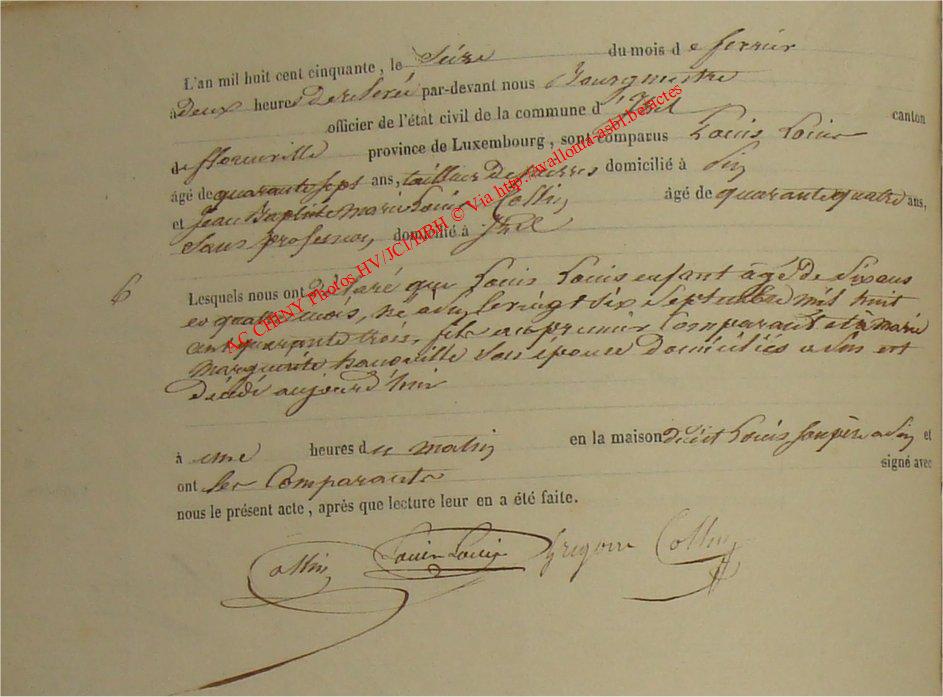 L'an mil huit cent cinquante, le Seize du mois de fevrier
à Deux heures De relevée par-devant nous Bourgmestre
officier de l'état civil de la commune d'Izel canton
de florenville province de Luxembourg, sont comparus Louis Louis
âgé de quarante sept ans, tailleur De pierres domicilié à
et Jean Baptiste marie Louis Collin âgé de quarante quatre ans,
Sans profession, domicilié à Izel
6 Lesquels nous ont déclaré que Louis Louis enfant âgé de Six ans
et quatre mois, né le vingt Six Septembre mil huit
cent quarante trois, fils au premier Comparant et à marie
marguerite Son épouse Domiciliés a est
Décédé aujourd'hui
à une heures du matin en la maison dudit Louis son père a et
ont les Comparants signé avec
nous le présent acte, après que lecture leur en a été faite.
Collin Louis Louis Grégoire Collin
AC CHINY Photos HV/JCI/MBH © Via http://wallonia-asbl.be/actes